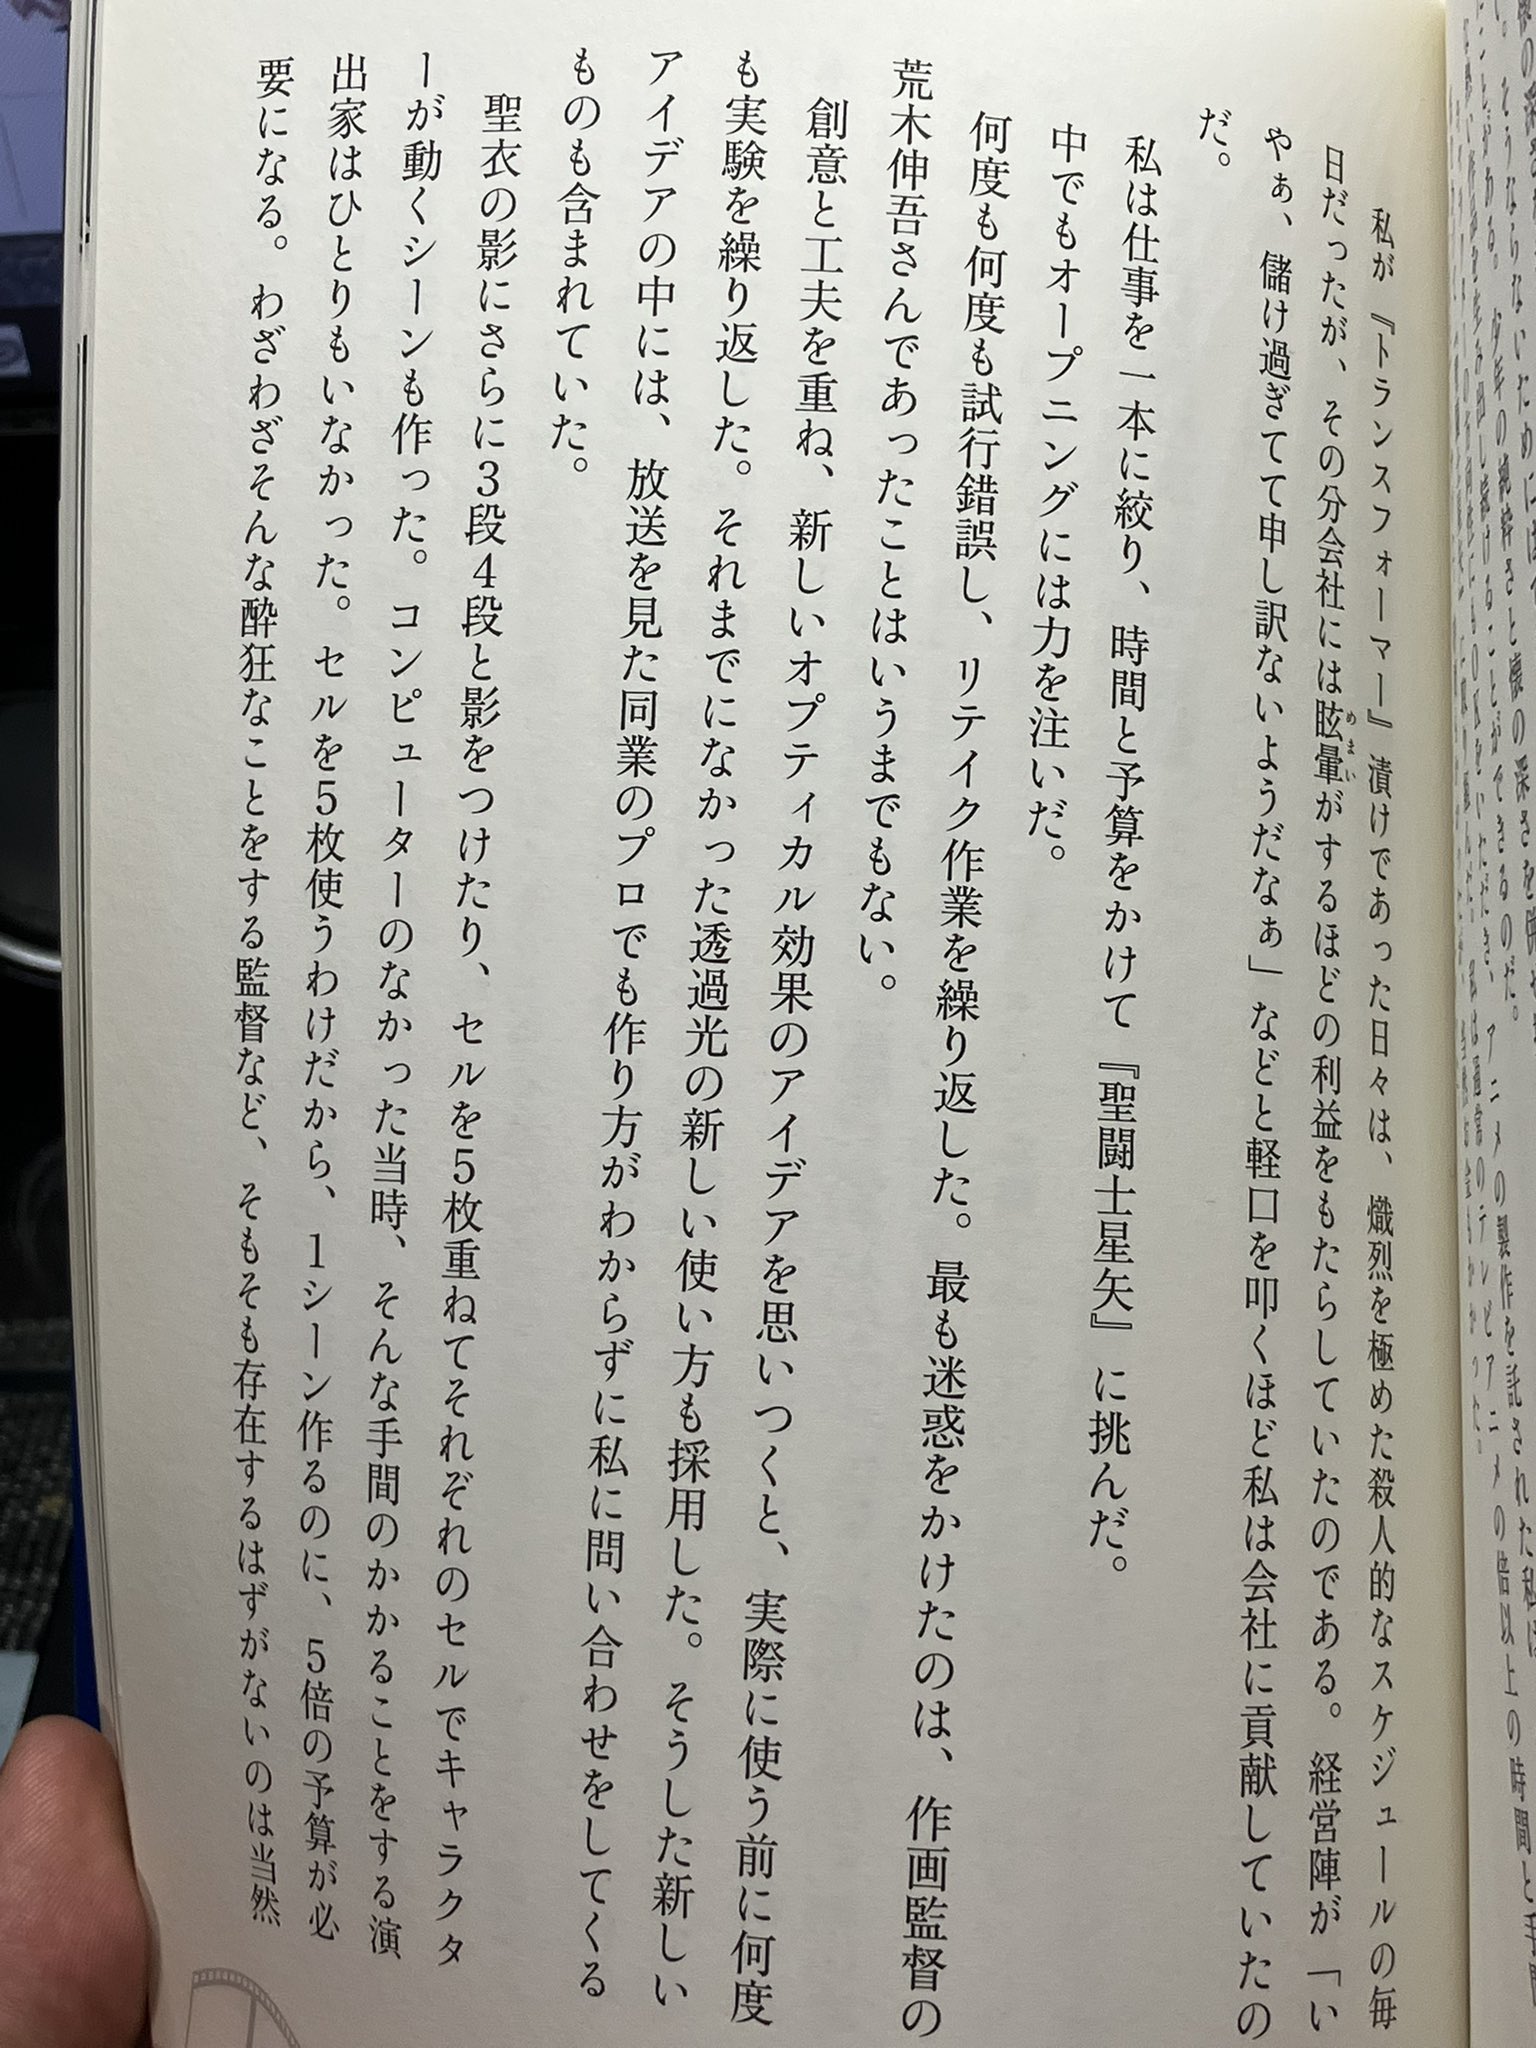 私が『トランスフォーマー』漬けであった日々は、熾烈を極めた殺人的なスケジュールの毎
日だったが、その分会社には眩暈がするほどの利益をもたらしていたのである。経営陣が「い
めまい
やぁ、儲け過ぎてて申し訳ないようだなぁ」などと軽口を叩くほど私は会社に貢献していたの
だ。
私は仕事を一本に絞り、時間と予算をかけて『聖闘士星矢』に挑んだ。
中でもオープニングには力を注いだ。
何度も何度も試行錯誤し、リテイク作業を繰り返した。最も迷惑をかけたのは、作画監督の
荒木伸吾さんであったことはいうまでもない。
創意と工夫を重ね、新しいオプティカル効果のアイデアを思いつくと、実際に使う前に何度
も実験を繰り返した。それまでになかった透過光の新しい使い方も採用した。そうした新しい
アイデアの中には、放送を見た同業のプロでも作り方がわからずに私に問い合わせをしてくる
ものも含まれていた。
聖衣の影にさらに3段4段と影をつけたり、セルを5枚重ねてそれぞれのセルでキャラクタ
ーが動くシーンも作った。コンピューターのなかった当時、そんな手間のかかることをする演
出家はひとりもいなかった。セルを5枚使うわけだから、1シーン作るのに、5倍の予算が必
要になる。わざわざそんな酔狂なことをする監督など、そもそも存在するはずがないのは当然